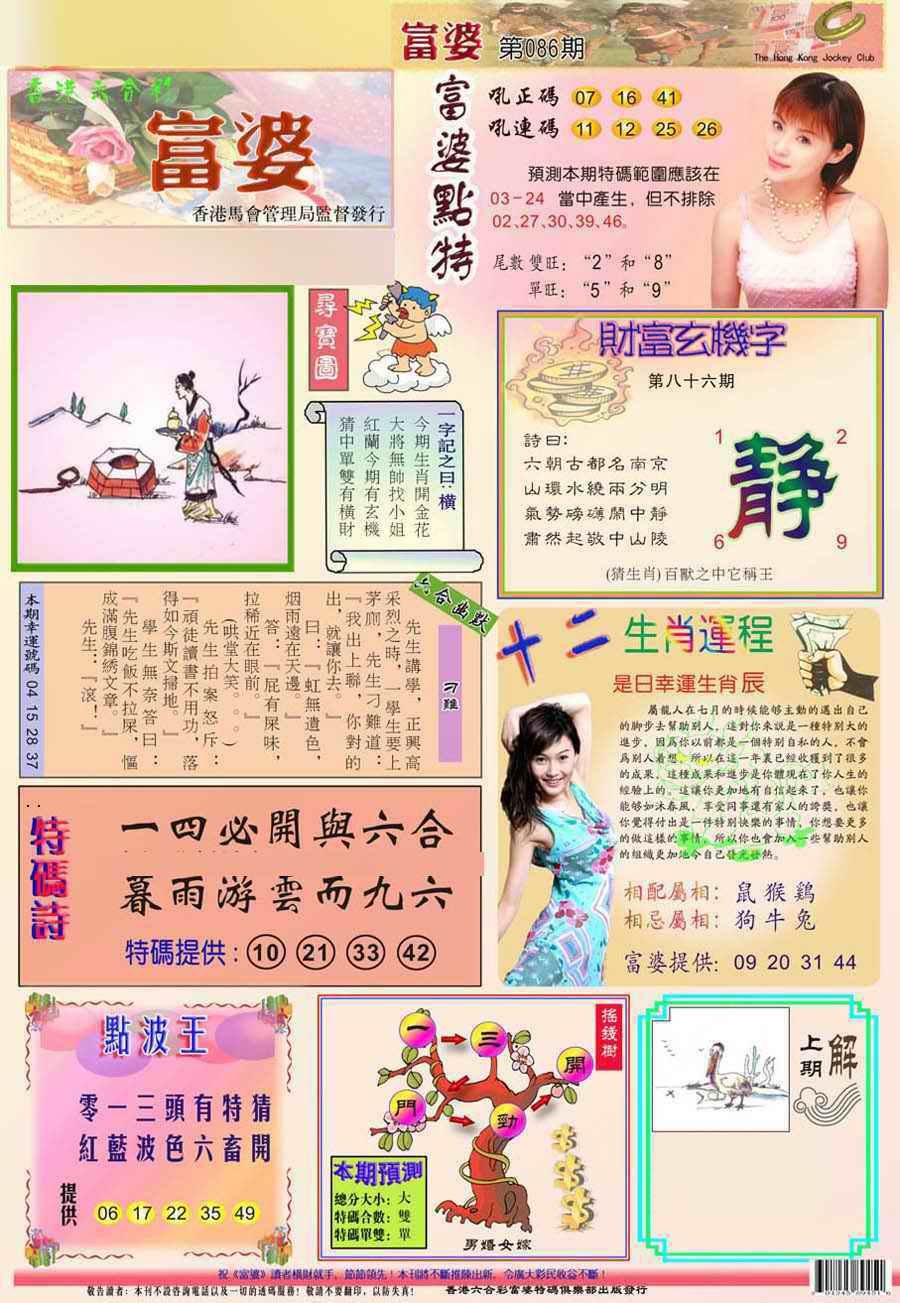 富婆 第086期
The Hong Kong Jockey Club
香港六合彩
富婆
香港馬會管理局監督發行
富婆點特
吼正碼 07 16 41
吼連碼 11 12 25 26
預測本期特碼範圍應該在
03-24 當中產生，但不排除
02,27,30,39,46。
尾數雙旺：“2”和“8”
單旺：“5”和“9”
尋寶圖
一字記之曰：橫
今期生肖開金花
大將無帥找小姐
紅蘭今期有玄機
猜中單雙有橫財
財富玄機字
第八十六期
詩曰：
六朝古都名南京
山環水繞兩分明
氣勢磅礴鬧中靜
肅然起敬中山陵
1 2
靜
6 9
(猜生肖)百獸之中它稱王
六合幽默
刁難
先生講學，正興高
采烈之時，一學生要上
茅廁，先生刁難道：
『我出上聯，你對的
出，就讓你去。』
曰：『虹無遺色，
烟雨遠在天邊。』
答：『屁有屎味，
拉稀近在眼前。』
(哄堂大笑。。。)
先生拍案怒斥：
『頑徒讀書不用功，落
得如今斯文掃地。』
學生無奈答曰：
『先生吃飯不拉屎，憋
成滿腹錦綉文章。』
先生：『滾！』
本期幸運號碼 04 15 28 37
十二生肖運程
是日幸運生肖辰
屬龍人在七月的時候能够主動的邁出自己
的脚步去幫助別人，這對你來說是一種特別大的
進步，因爲你以前都是一個特別自私的人，不會
爲別人着想，所以在這一年裏已經收獲到了很多
的成果，這種成果和進步是你體現在了你人生的
經驗上的。這讓你更加地有自信起來了，也讓你
能够如沐春風，享受同事還有家人的誇獎，也讓
你覺得付出是一件特別快樂的事情，你想要更多
的做這樣的事情，所以你也會加入一些幫助別人
的組織更加地令自己發光發熱。
相配屬相：鼠 猴 鷄
相忌屬相：狗 牛 兔
富婆提供：09 20 31 44
特碼詩
一四必開與六合
暮雨游雲而九六
特碼提供：10 21 33 42
點波王
零一三頭有特猜
紅藍波色六畜開
提供 06 17 22 35 49
搖錢樹
一 三 開
門 勁
本期預測
總分大小：大
特碼合數：雙
特碼單雙：單
男婚女嫁
上期解
祝《富婆》讀者橫財就手，節節領先！本刊將不斷推陳出新，令廣大彩民收益不斷！
敬告讀者：本刊不設咨詢電話以及一切的透碼服務！敬請不要翻印，以防失真！
香港六合彩富婆特碼俱樂部出版發行